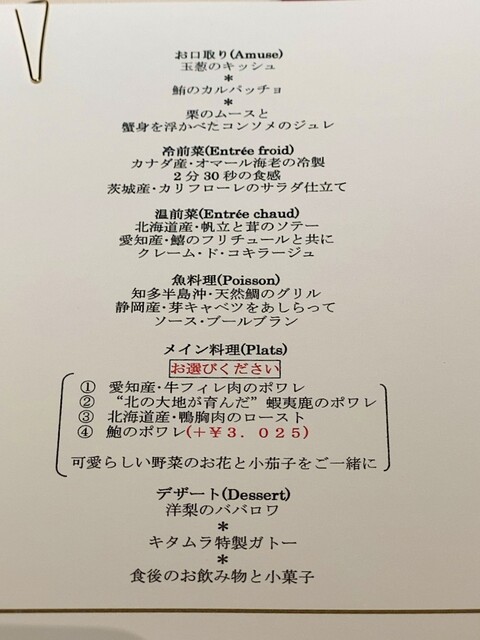 お口取り(Amuse)
玉葱のキッシュ
*
鮪のカルパッチョ
*
栗のムースと
蟹身を浮かべたコンソメのジュレ
冷前菜(Entrée froid)
カナダ産・オマール海老の冷製
2分30秒の食感
茨城産・カリフローレのサラダ仕立て
温前菜(Entrée chaud)
北海道産・帆立と茸のソテー
愛知産・鱚のフリチュールと共に
クレーム・ド・コキラージュ
魚料理(Poisson)
知多半島沖・天然鯛のグリル
静岡産・芽キャベツをあしらって
ソース・ブールブラン
メイン料理(Plats)
お選びください
① 愛知産・牛フィレ肉のポワレ
② “北の大地が育んだ”蝦夷鹿のポワレ
③ 北海道産・鴨胸肉のロースト
④ 鮑のポワレ(+¥3.025)
可愛らしい野菜のお花と小茄子をご一緒に
デザート(Dessert)
洋梨のババロワ
*
キタムラ特製ガトー
*
食後のお飲み物と小菓子